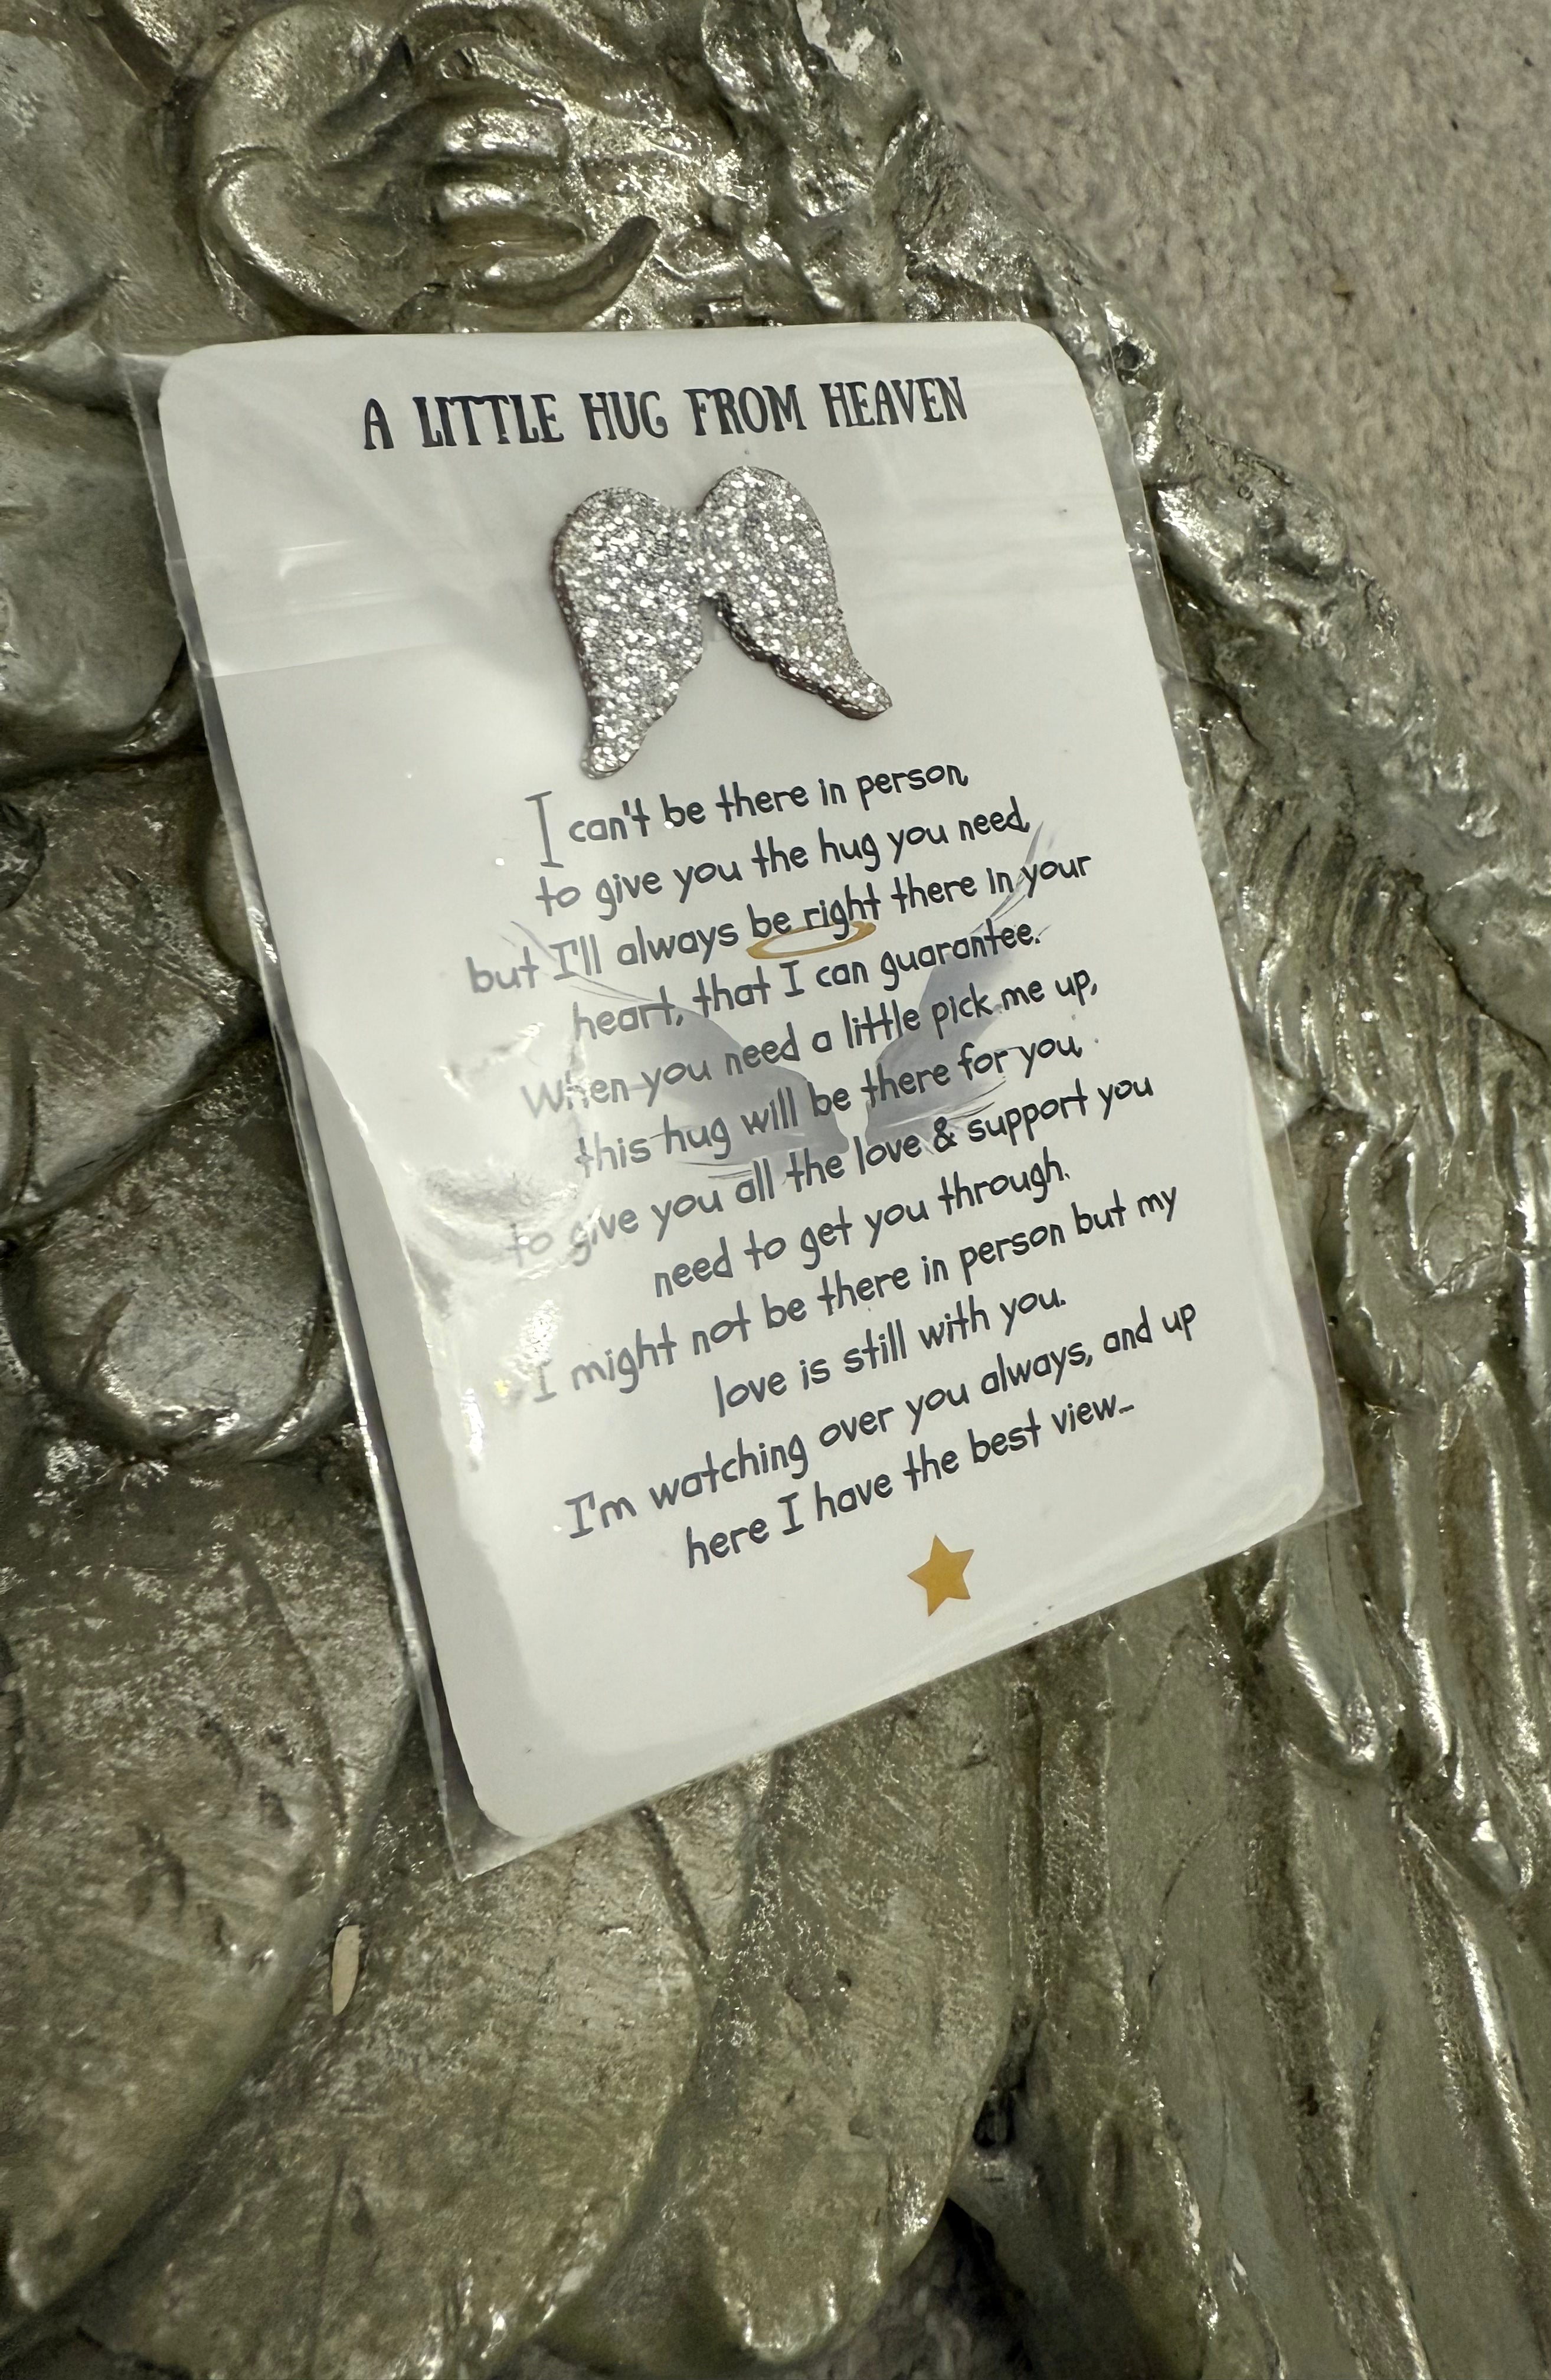 A LITTLE HUG FROM HEAVEN
I can't be there in person,
to give you the hug you need,
but I'll always be right there in your
heart, that I can guarantee.
When you need a little pick me up,
this hug will be there for you,
to give you all the love & support you
need to get you through.
I might not be there in person but my
love is still with you.
I'm watching over you always, and up
here I have the best view...